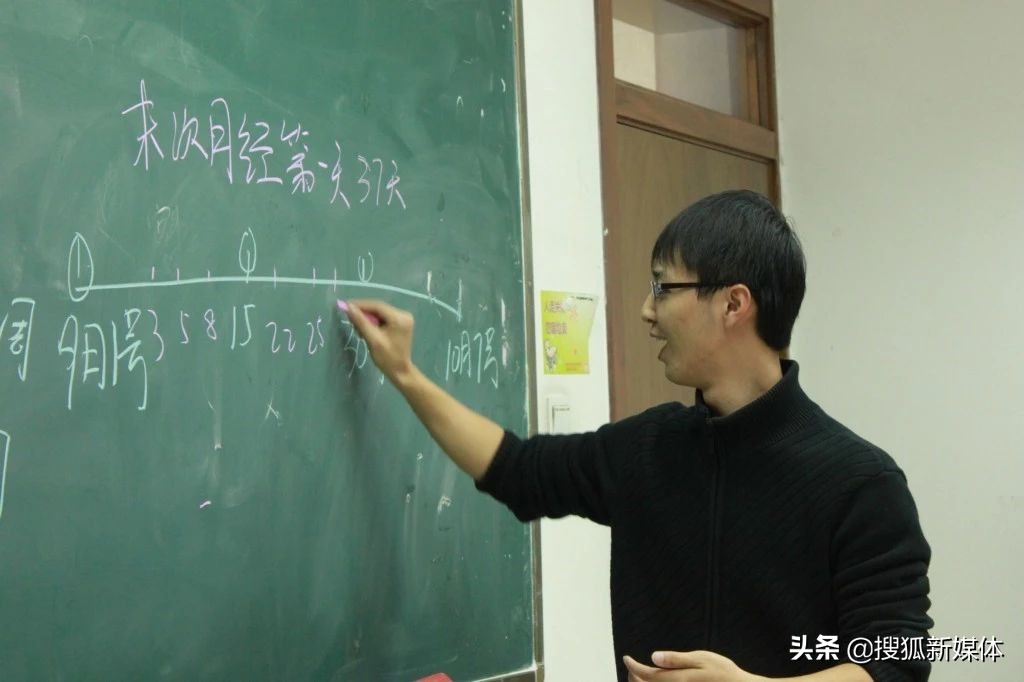 末次月经第一天 37天
① ① ①
周
9月1号 3 5 8 15 22 25 30 10月7号
头条 @搜狐新媒体